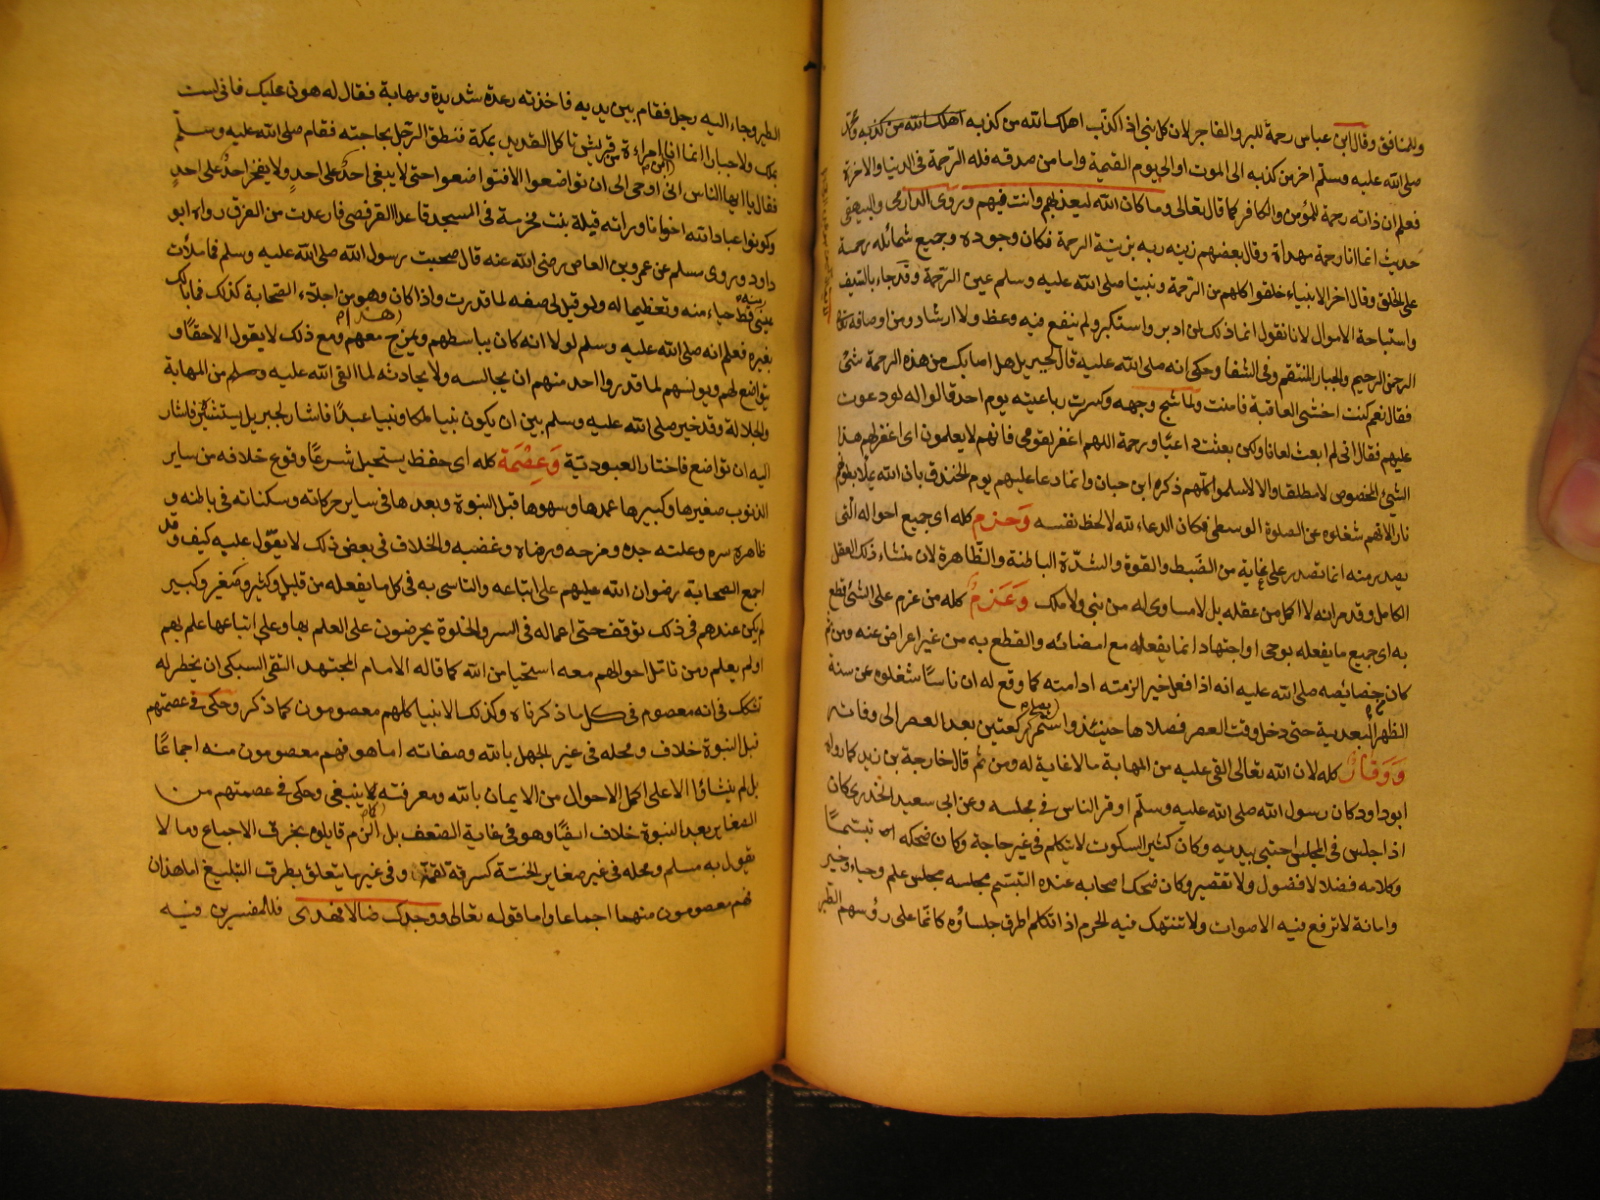 وللمنافق وقال ابن عباس رحمة للبر والفاجر لان كل نبى اذا كذب اهلك الله من كذبه ومحمد
صلى الله عليه وسلم اخر من كذبه الى الموت او الى يوم القيمة واما من صدقه فله الرحمة فى الدنيا والاخرة
فعلم ان ذاته رحمة للمؤمن والكافر كما قال تعالى وما كان الله ليعذبهم وانت فيهم وروى الدارمى والبيهقى
حديث انما انا رحمة مهداة وقال بعضهم زينه ربه بزينة الرحمة فكان وجوده وجميع شمائله رحمة
على الخلق وقال اخر الانبياء خلقوا كلهم من الرحمة ونبينا صلى الله عليه وسلم عين الرحمة وقد جاء بالسيف
واستباحة الاموال لانا نقول انما ذلك لمن ادبر واستكبر ولم ينفع فيه وعظ ولا ارشاد ومن اوصافه تعالى
الرحمن الرحيم والجبار المنتقم وفى الشفا وحكى انه صلى الله عليه قال لجبريل هل اصابك من هذه الرحمة شئ
فقال نعم كنت اخشى العاقبة فامنت ولما شج وجهه وكسرت رباعيته يوم احد قالوا له لو دعوت
عليهم فقال انى لم ابعث لعانا ولكن بعثت داعيا ورحمة اللهم اغفر لقومى فانهم لا يعلمون اى اغفر لهم هذا
الشئ المخصوص لا مطلقا والا لاسلموا كلهم ذكره ابن حبان وانما دعا عليهم يوم الخندق بان الله يملا بطونهم
نارا لانهم شغلوه عن الصلوة الوسطى فكان الدعاء لله لا لحظ نفسه وحزم كله اى جميع احواله التى
يصدر منه انما تصدر على غاية من الضبط والقوة والشدة الباطنة والظاهرة لان منشاء ذلك العقل
الكامل وقد مر انه لا اكمل من عقله بل لا مساوى له من نبى ولا ملك وعزم كله من عزم على الشئ قطع
به اى جميع ما يفعله بوحى او اجتهاد انما يفعله مع امضائه والقطع به من غير اعراض عنه ومن ثم
كان من خصائصه صلى الله عليه انه اذا فعل خيرا لزمته ادامته كما وقع له ان ناسا شغلوه عن سنة
الظهر البعدية حتى دخل وقت العصر فصلاها حينئذ واستمر ركعتين بعد العصر الى وفاته
ووقار كله لان الله تعالى القى عليه من المهابة ما لا غاية له ومن ثم قال خارجة بن زيد كما رواه
ابو داود كان رسول الله صلى الله عليه وسلم اوقر الناس فى مجلسه وعن ابى سعيد الخدرى كان
اذا جلس فى المجلس احتبى بيديه وكان كثير السكوت لا يتكلم فى غير حاجة وكان ضحكه تبسما
وكلامه فصلا لا فضول ولا تقصير وكان ضحك اصحابه عنده التبسم مجلسه مجلس علم وحياء وخير
وامانة لا ترفع فيه الاصوات ولا تنتهك فيه الحرم اذا تكلم اطرق جلساؤه كانما على رؤسهم الطير
الطير وجاء اليه رجل فقام بين يديه فاخذته رعدة شديدة ومهابة فقال له هون عليك فانى لست
بملك ولا جبار انما انا ابن امراة من قريش تاكل القديد بمكة فنطق الرجل بحاجته فقام صلى الله عليه وسلم
فقال يا ايها الناس انى اوحى الى ان تواضعوا الا فتواضعوا حتى لا يبغى احد على احد ولا يفخر احد على احد
وكونوا عباد الله اخوانا وراته قيلة بنت مخرمة فى المسجد قاعدا القرفصى فارعدت من الفرق رواه ابو
داود وروى مسلم عن عمرو بن العاص رضى الله عنه قال صحبت رسول الله صلى الله عليه وسلم فما ملأت
عينى منه قط حياء منه وتعظيما له ولو قيل لى صفه لما قدرت واذا كان وهو من اجلاء الصحابة كذلك فما بالك
بغيره فعلم انه صلى الله عليه وسلم لولا انه كان يباسطهم ويمزح معهم ومع ذلك لا يقول الا حقا و
يتواضع لهم ويونسهم لما قدروا احد منهم ان يجالسه ولا يحادثه لما القى الله عليه وسلم من المهابة
والجلالة وقد خير صلى الله عليه وسلم بين ان يكون نبيا ملكا ونبيا عبدا فاشار لجبريل يستشيره فاشار
اليه ان تواضع فاختار العبودية وعصمة كله اى حفظ يستحيل شرعا وقوع خلافه من ساير
الذنوب صغيرها وكبيرها عمدها وسهوها قبل النبوة وبعدها فى ساير حركاته وسكناته فى باطنه و
ظاهره سره وعلنته جده ومزحه ورضاه وغضبه والخلاف فى بعض ذلك لا يعول عليه كيف وقد
اجمع الصحابة رضوان الله عليهم على اتباعه والتاسى به فى كل ما يفعله من قليل وكثير وصغير وكبير
لم يكن عندهم فى ذلك توقف حتى اعماله فى السر والخلوة يحرضون على العلم بها وعلى اتباعها علم بهم
او لم يعلم ومن تامل احوالهم معه استحيا من الله كما قاله الامام المجتهد التقى السبكى ان يخطر له
تشكك فى انه معصوم فى كل ما ذكرناه وكذلك الانبيا كلهم معصومون كما ذكر وحكى فى عصمتهم
قبل النبوة خلاف ومحله فى غير الجهل بالله وصفاته اما هو فهم معصومون منه اجماعا
بل لم ينشاؤا الا على اكمل الاحوال من الايمان بالله ومعرفته كما ينبغى وحكى فى عصمتهم من
الصغاير بعد النبوة خلاف ايضا وهو فى غاية الضعف بل الزم قايلوه بخرق الاجماع وما لا
يقول به مسلم ومحله فى غير صغاير الخسة كسرقة لقمة وفى غير ما يتعلق بطرق التبليغ اما هذان
فهم معصومون منهما اجماعا واما قوله تعالى ووجدك ضالا فهدى فللمفسرين فيه